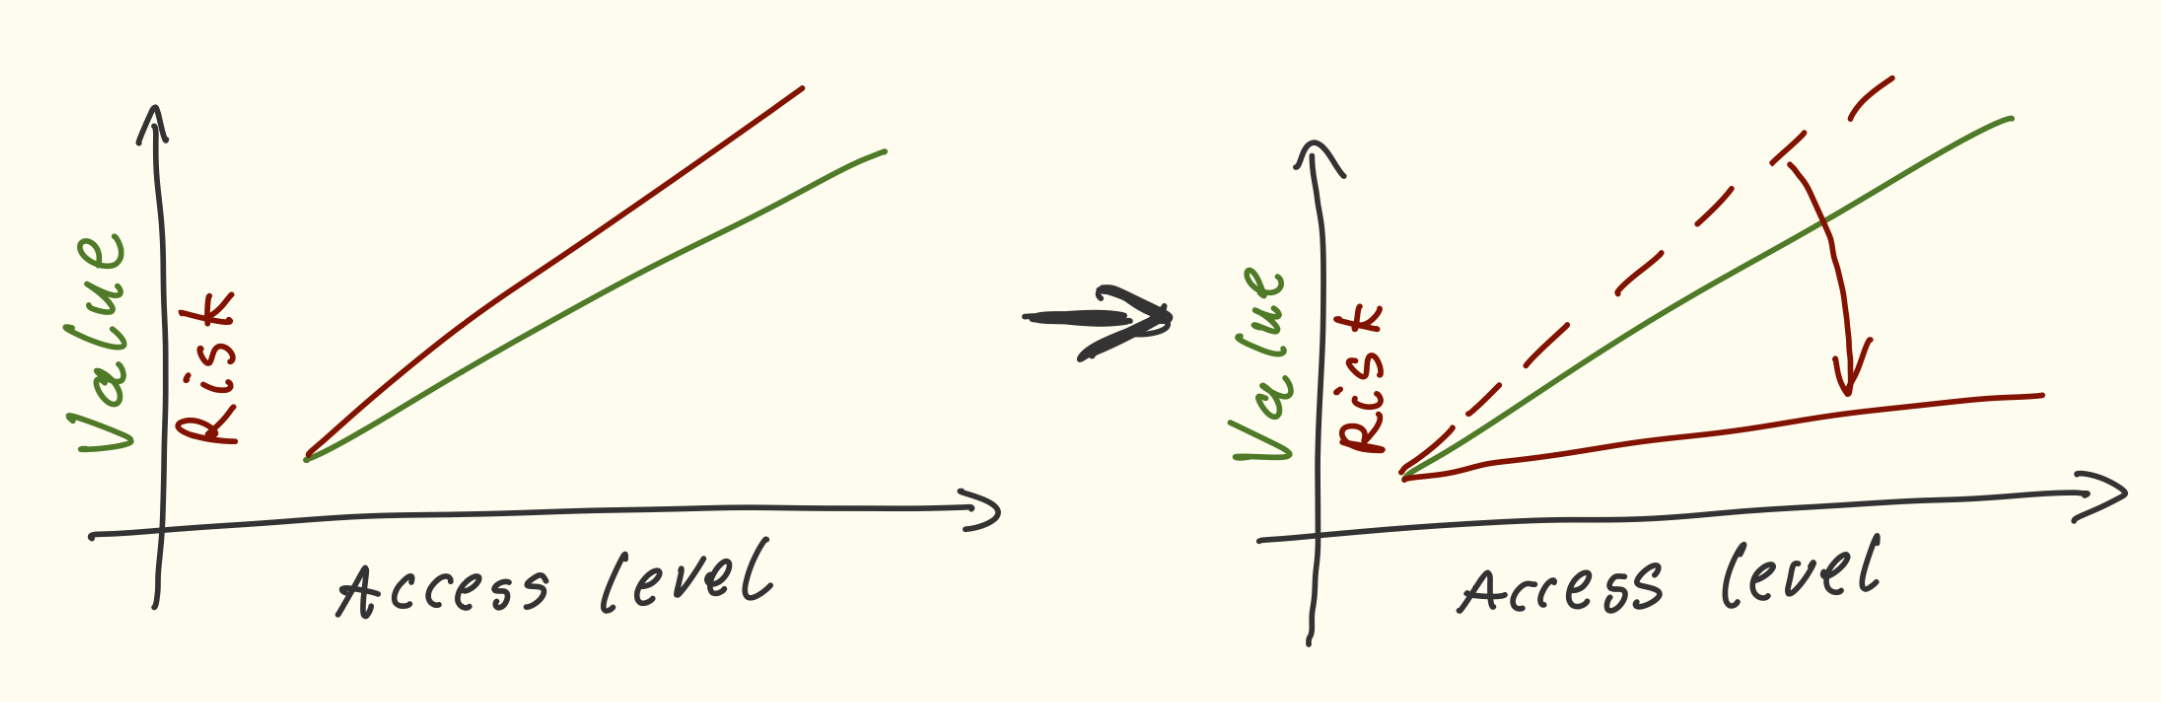 Value
Risk
Access level
Value
Risk
Access level